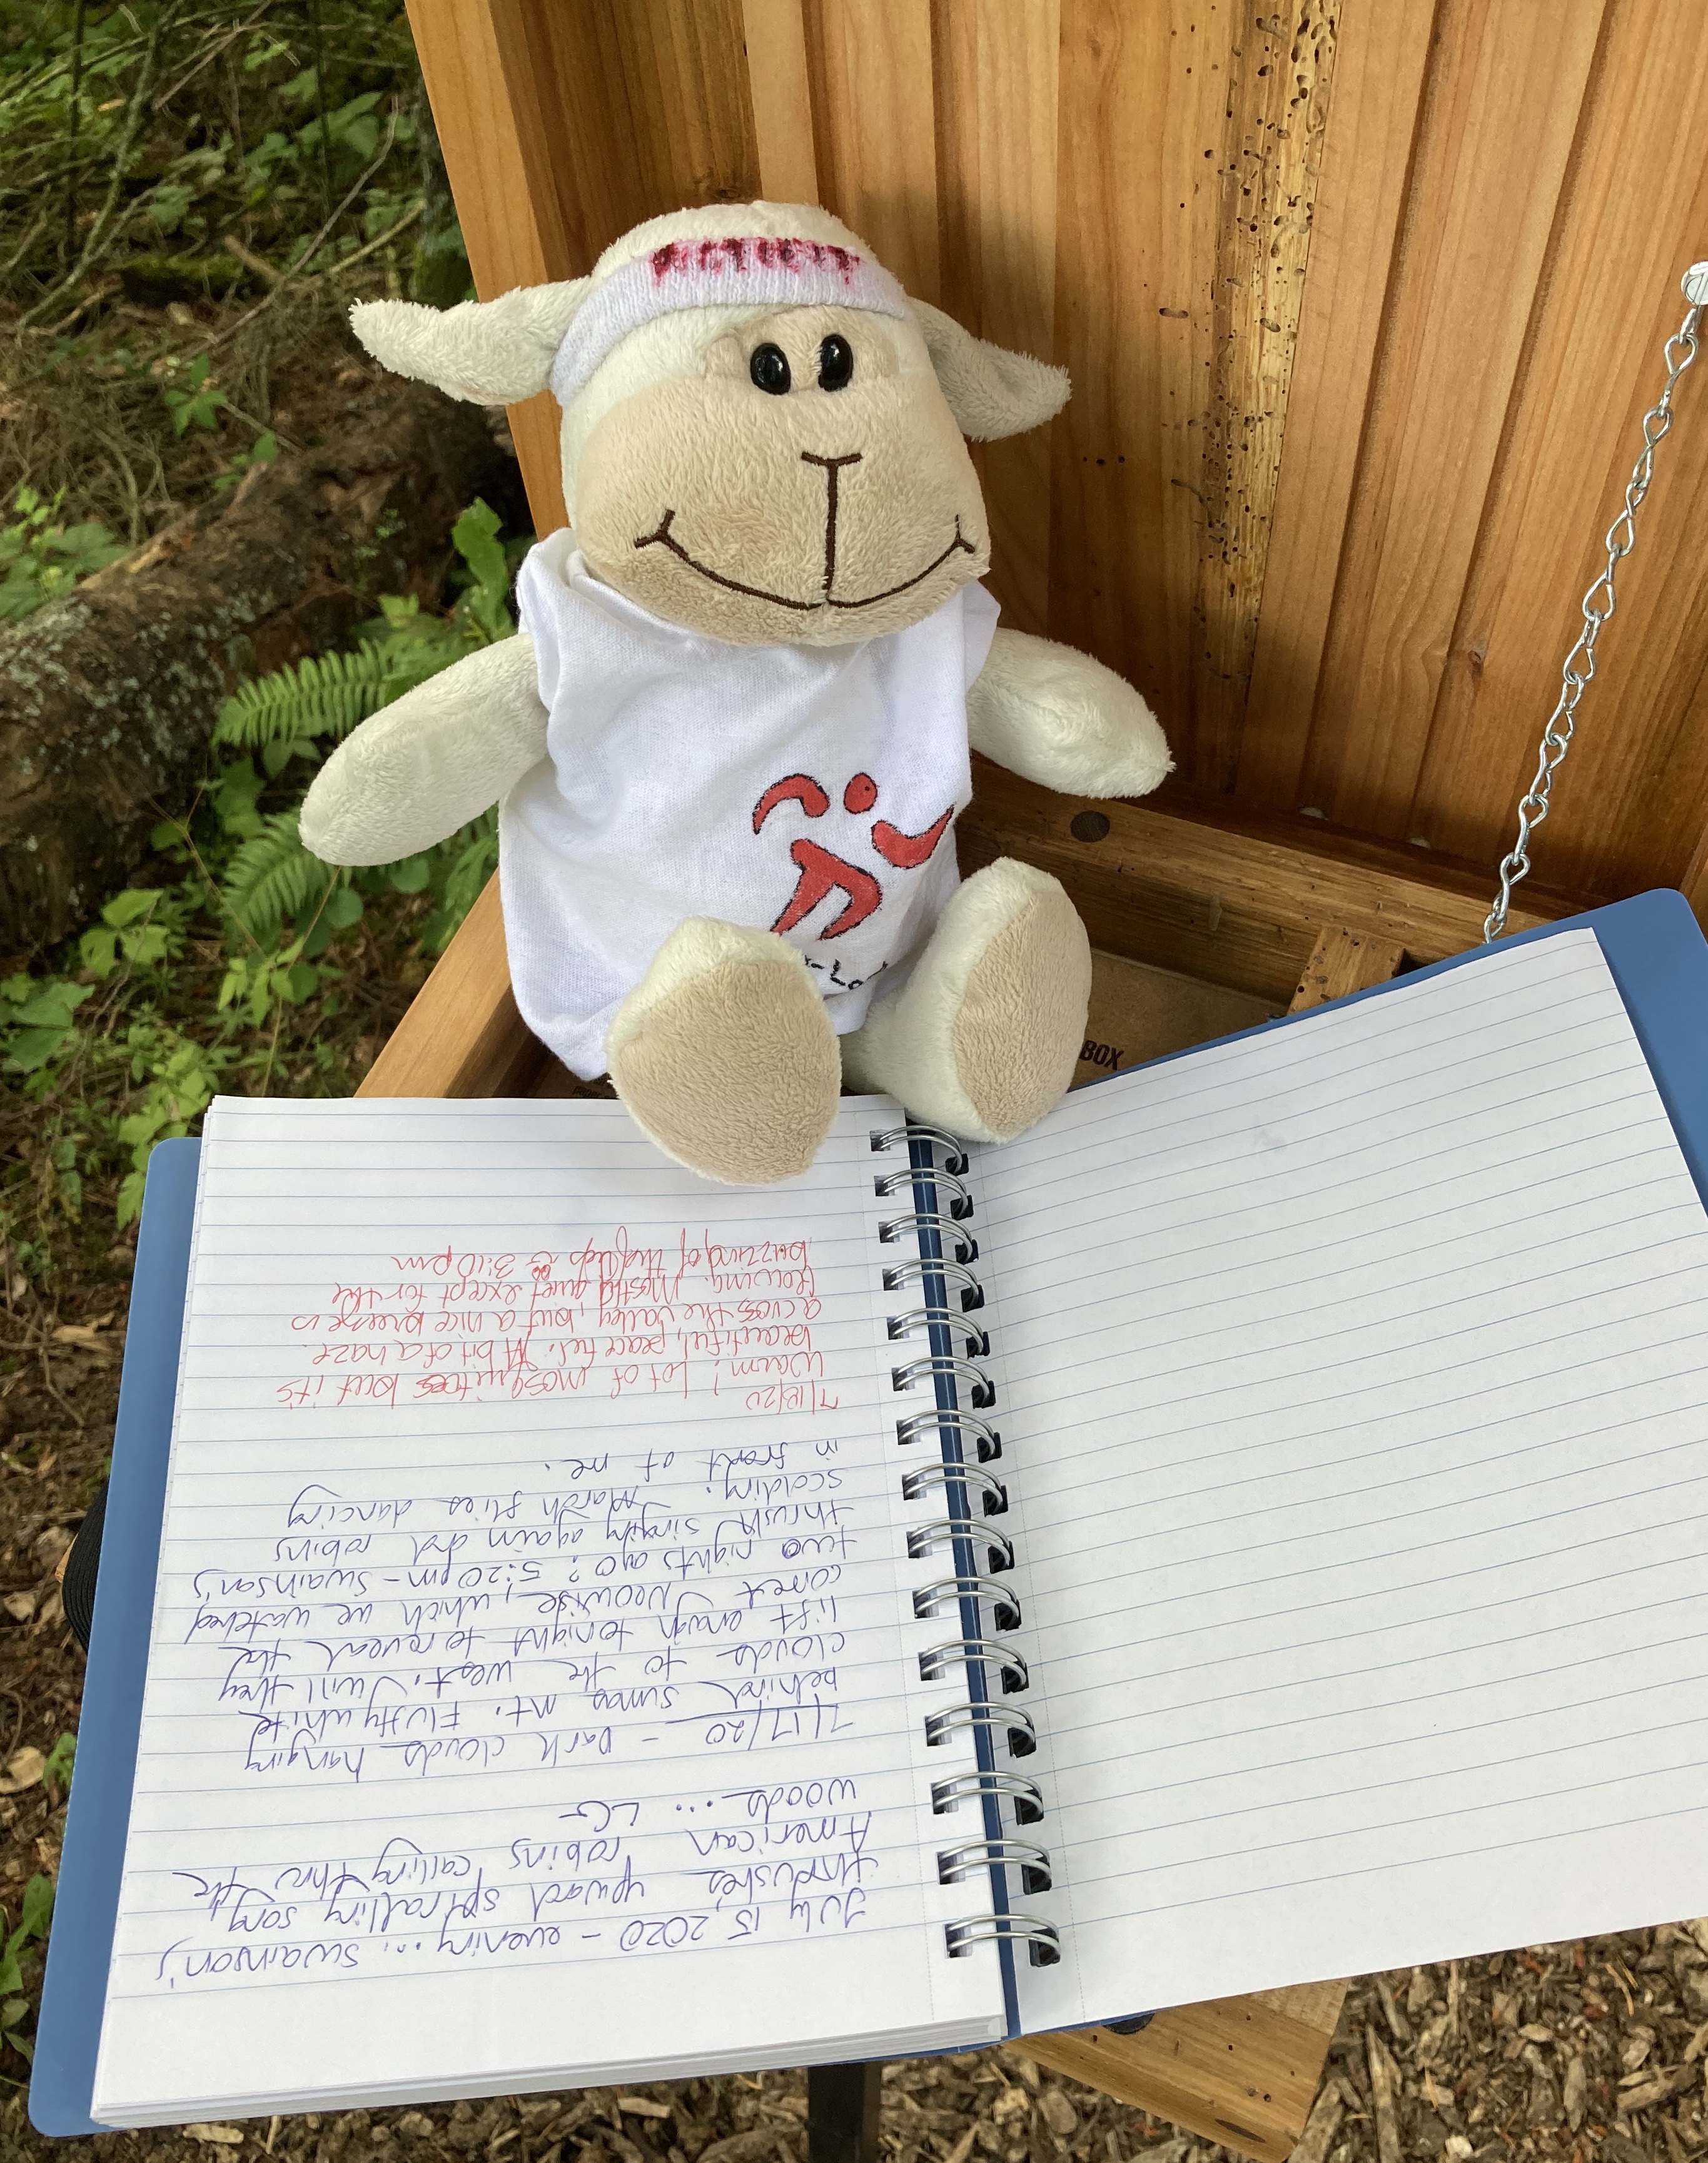 BOX
July 15, 2020 - evening... Swainson's
thrushes upward spiralling song
American robins calling thru the
woods... LG
7/17/20 - Dark clouds hanging
behind Sumas Mt. Fluffy white
clouds to the west. Will they
lift enough tonight to reveal the
comet Neowise, which we watched
two nights ago? 5:20 pm - Swainson's
thrush singing again and robins
scolding. March flies dancing
in front of me.
7/18/20
Warm! Lot of mosquitoes but it's
beautiful, peaceful. A bit of a haze
across the valley, but a nice breeze is
flowing. Mostly quiet except for the
buzzing of the bugs 3:10 pm